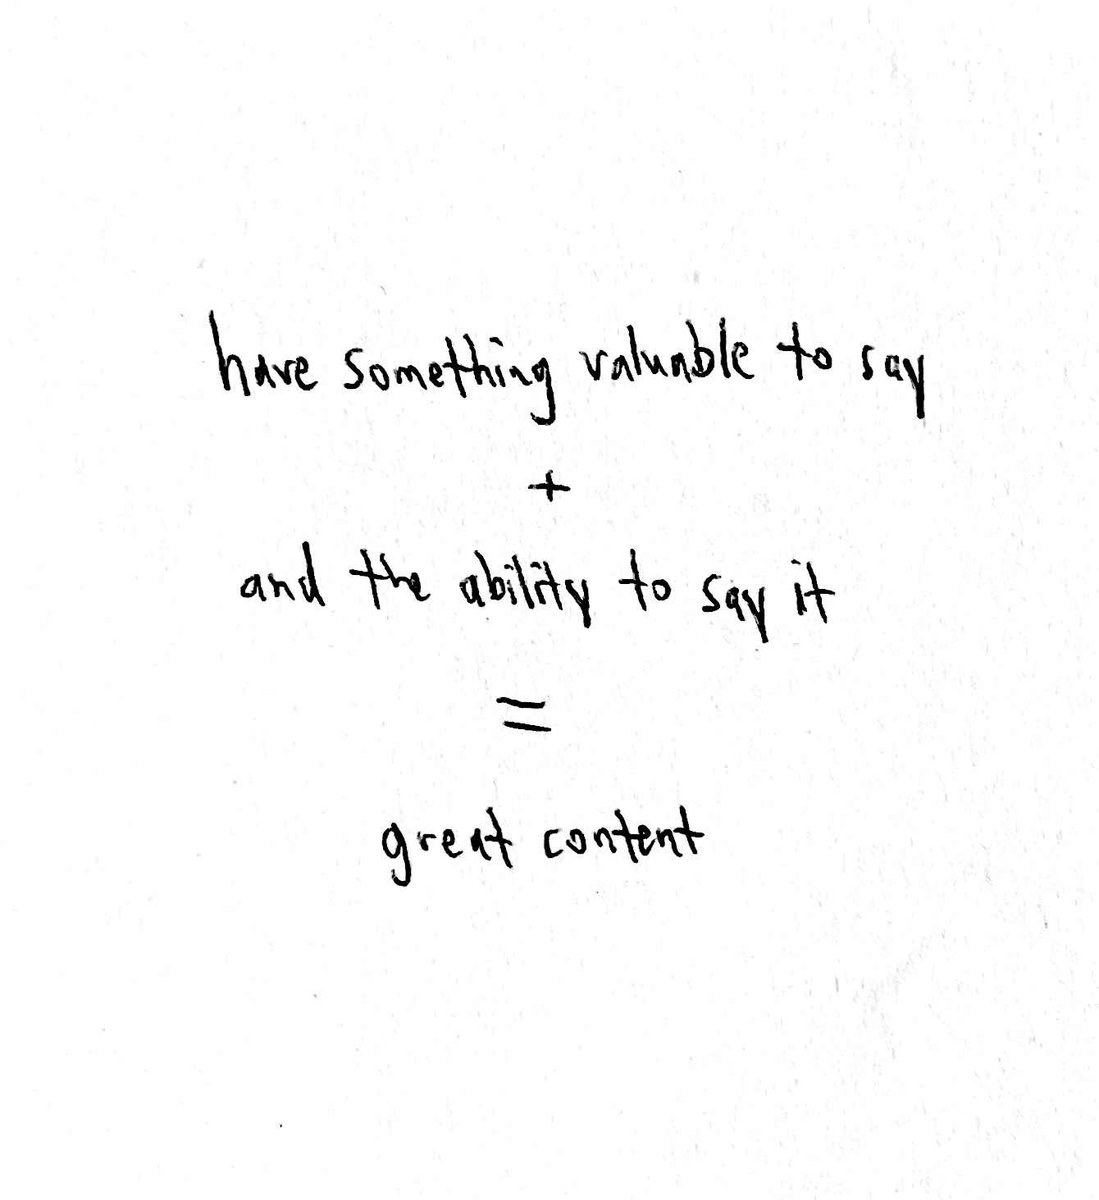 have something valuable to say
+
and the ability to say it
=
great content